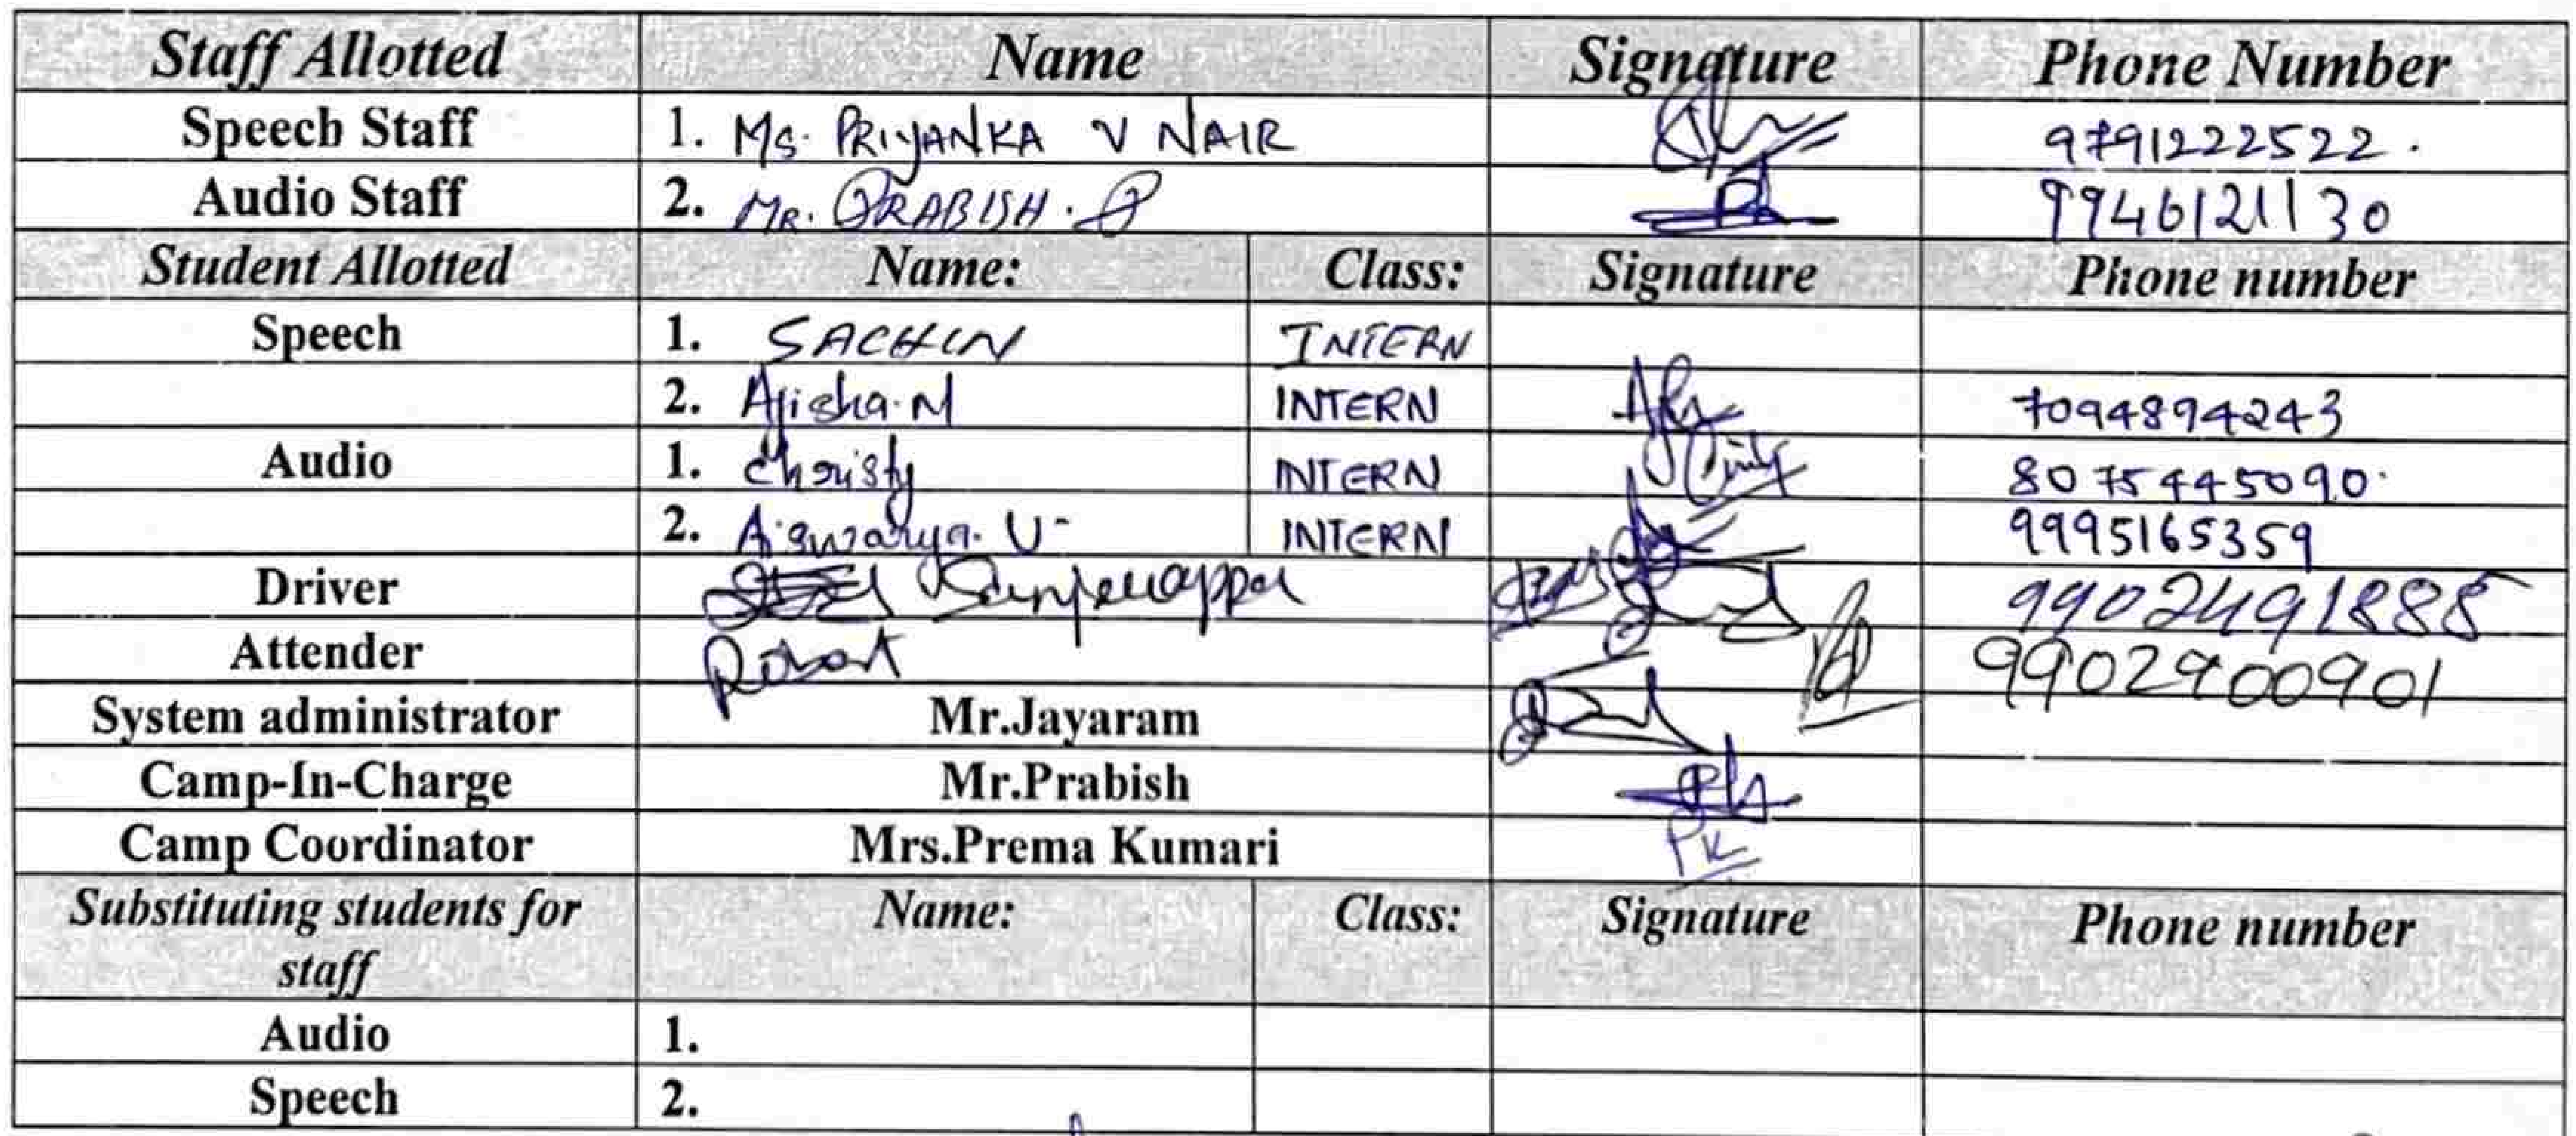 Staff Allotted Name Signature Phone Number
Speech Staff 1. Ms. PRIYANKA V NAIR 9791222522.
Audio Staff 2. MR. PRABISH. P 9946121130
Student Allotted Name: Class: Signature Phone number
Speech 1. SACHIN INTERN
2. Ajisha.M INTERN 7094894243
Audio 1. Christy INTERN 8075445090.
2. Aiswarya. U INTERN 9995165359
Driver 9902491888
Attender 9902900901
System administrator Mr.Jayaram
Camp-In-Charge Mr.Prabish
Camp Coordinator Mrs.Prema Kumari PK
Substituting students for Name: Class: Signature Phone number
staff
Audio 1.
Speech 2.